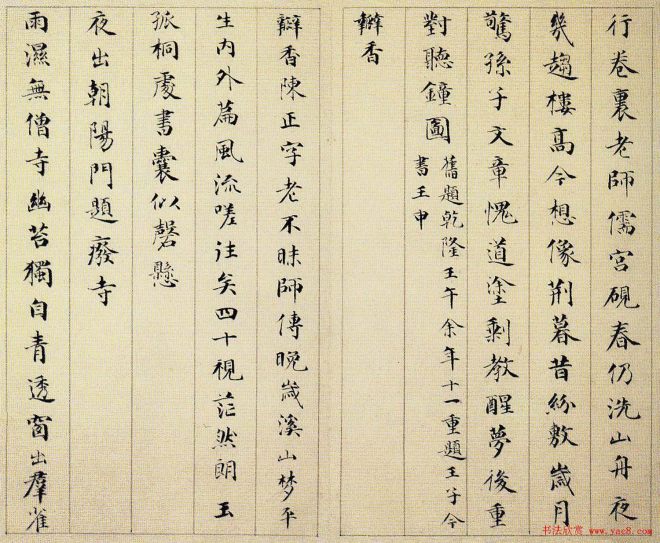 行卷裏老師儒宮硯春仍洗山舟夜
幾趨樓高今想像荆暮昔紛敷歲月
驚孫子文章愧道塗剩教醒夢後重
對聽鐘圖舊題乾隆壬午余年十一重題壬子今
書壬申
瓣香
瓣香陳正字老不昧師傳晚歲溪山梦平
生内外篇風流嗟往矣四十視茫然朗玉
孤桐處書囊似磬懸
夜出朝陽門題廢寺
雨濕無僧寺幽苔獨自青透窗出羣雀
书法欣赏 www.yac8.com